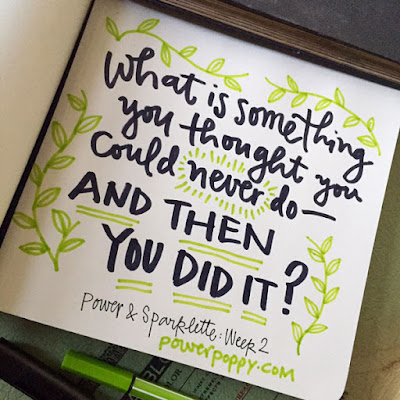 What is something
you thought you
could never do—
AND THEN
YOU DID IT?
Power & Sparklette: Week 2
powerpoppy.com